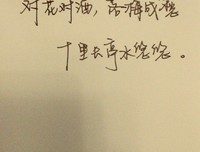 对花对酒，落梅成愁
十里长亭水悠悠。